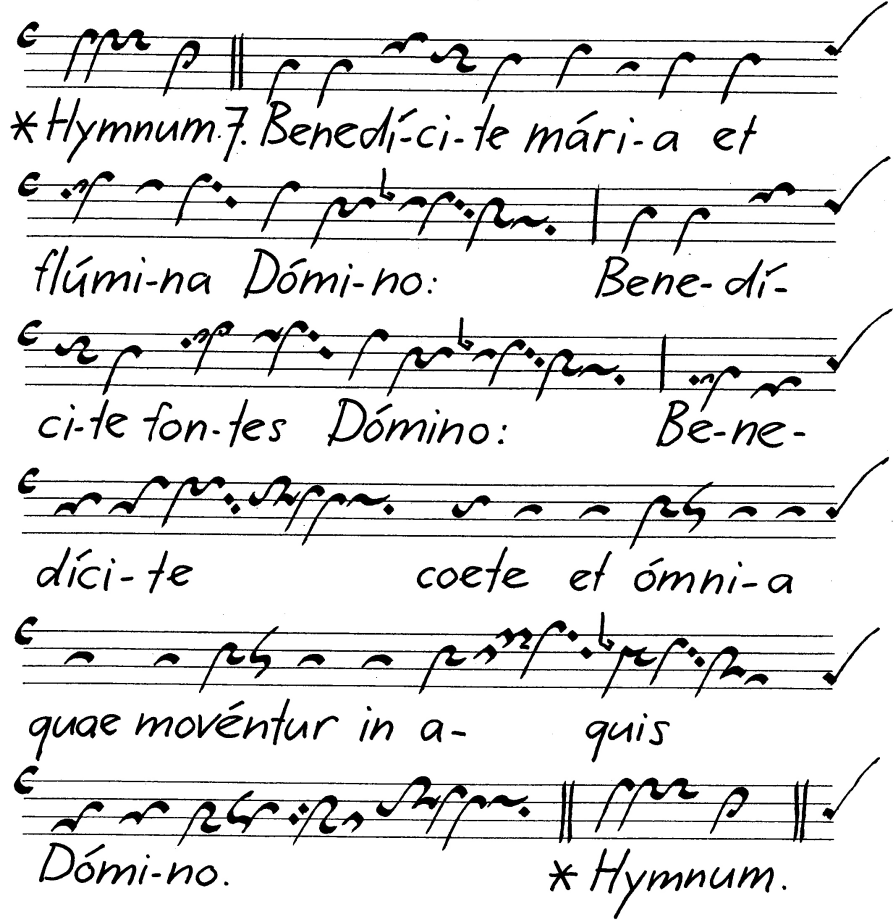 *Hymnum. 7. Benedí-ci-te mári-a et
flúmi-na Dómi-no: Bene-dí-
ci-te fon-tes Dómino: Be-ne-
díci-te coete et ómni-a
quae movéntur in a- quis
Dómi-no. *Hymnum.